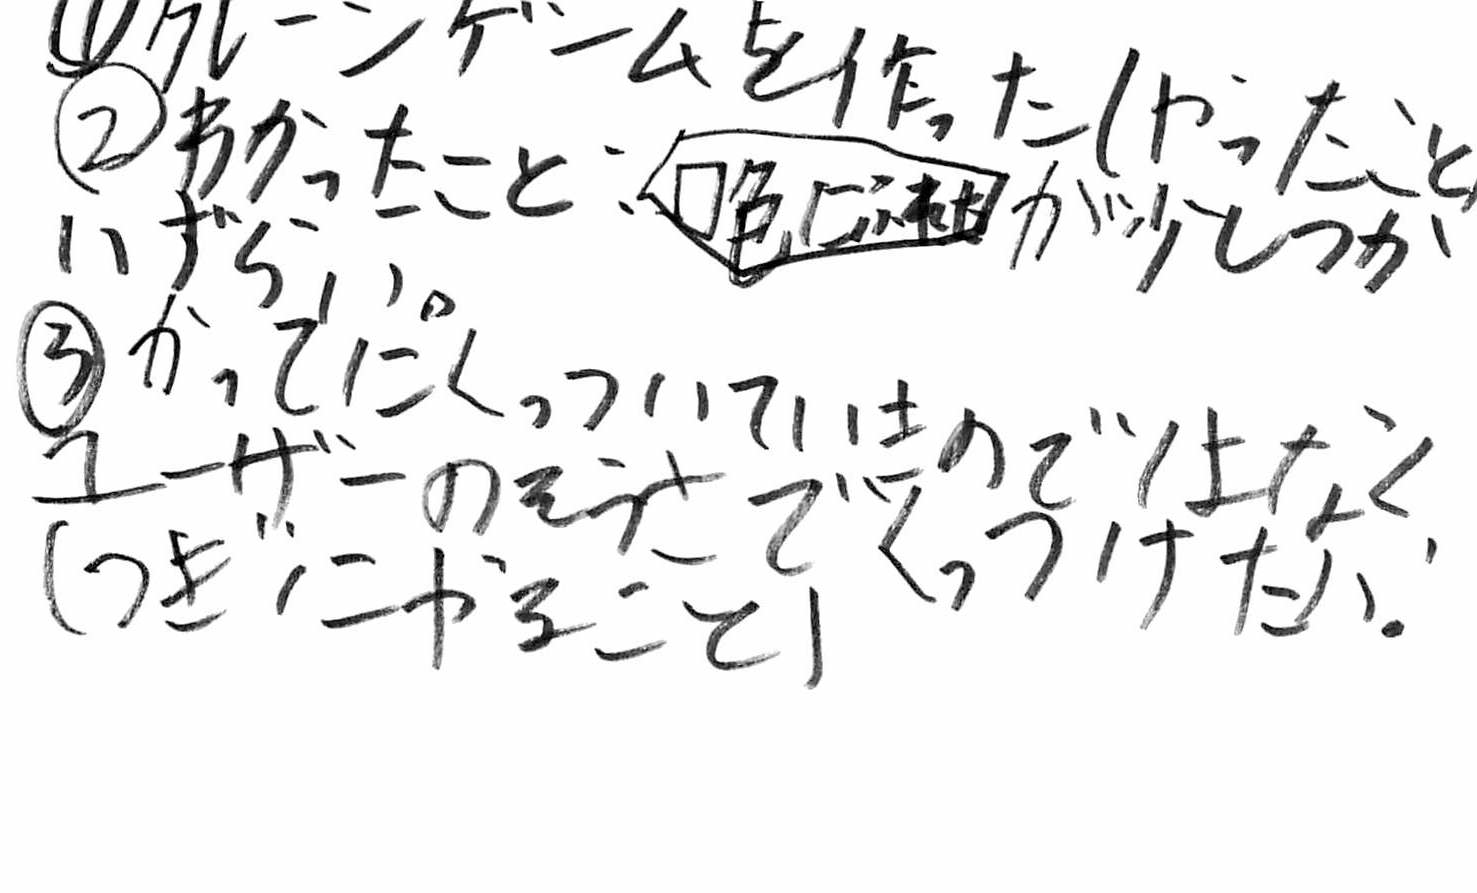 ①クレーンゲームを作った(やったこと
②わかったこと:□色に触れたが少しつか
いずらい。
③かってにくっついているのではなく
ユーザーのそうさでくっつけたい.
(つぎにやること)